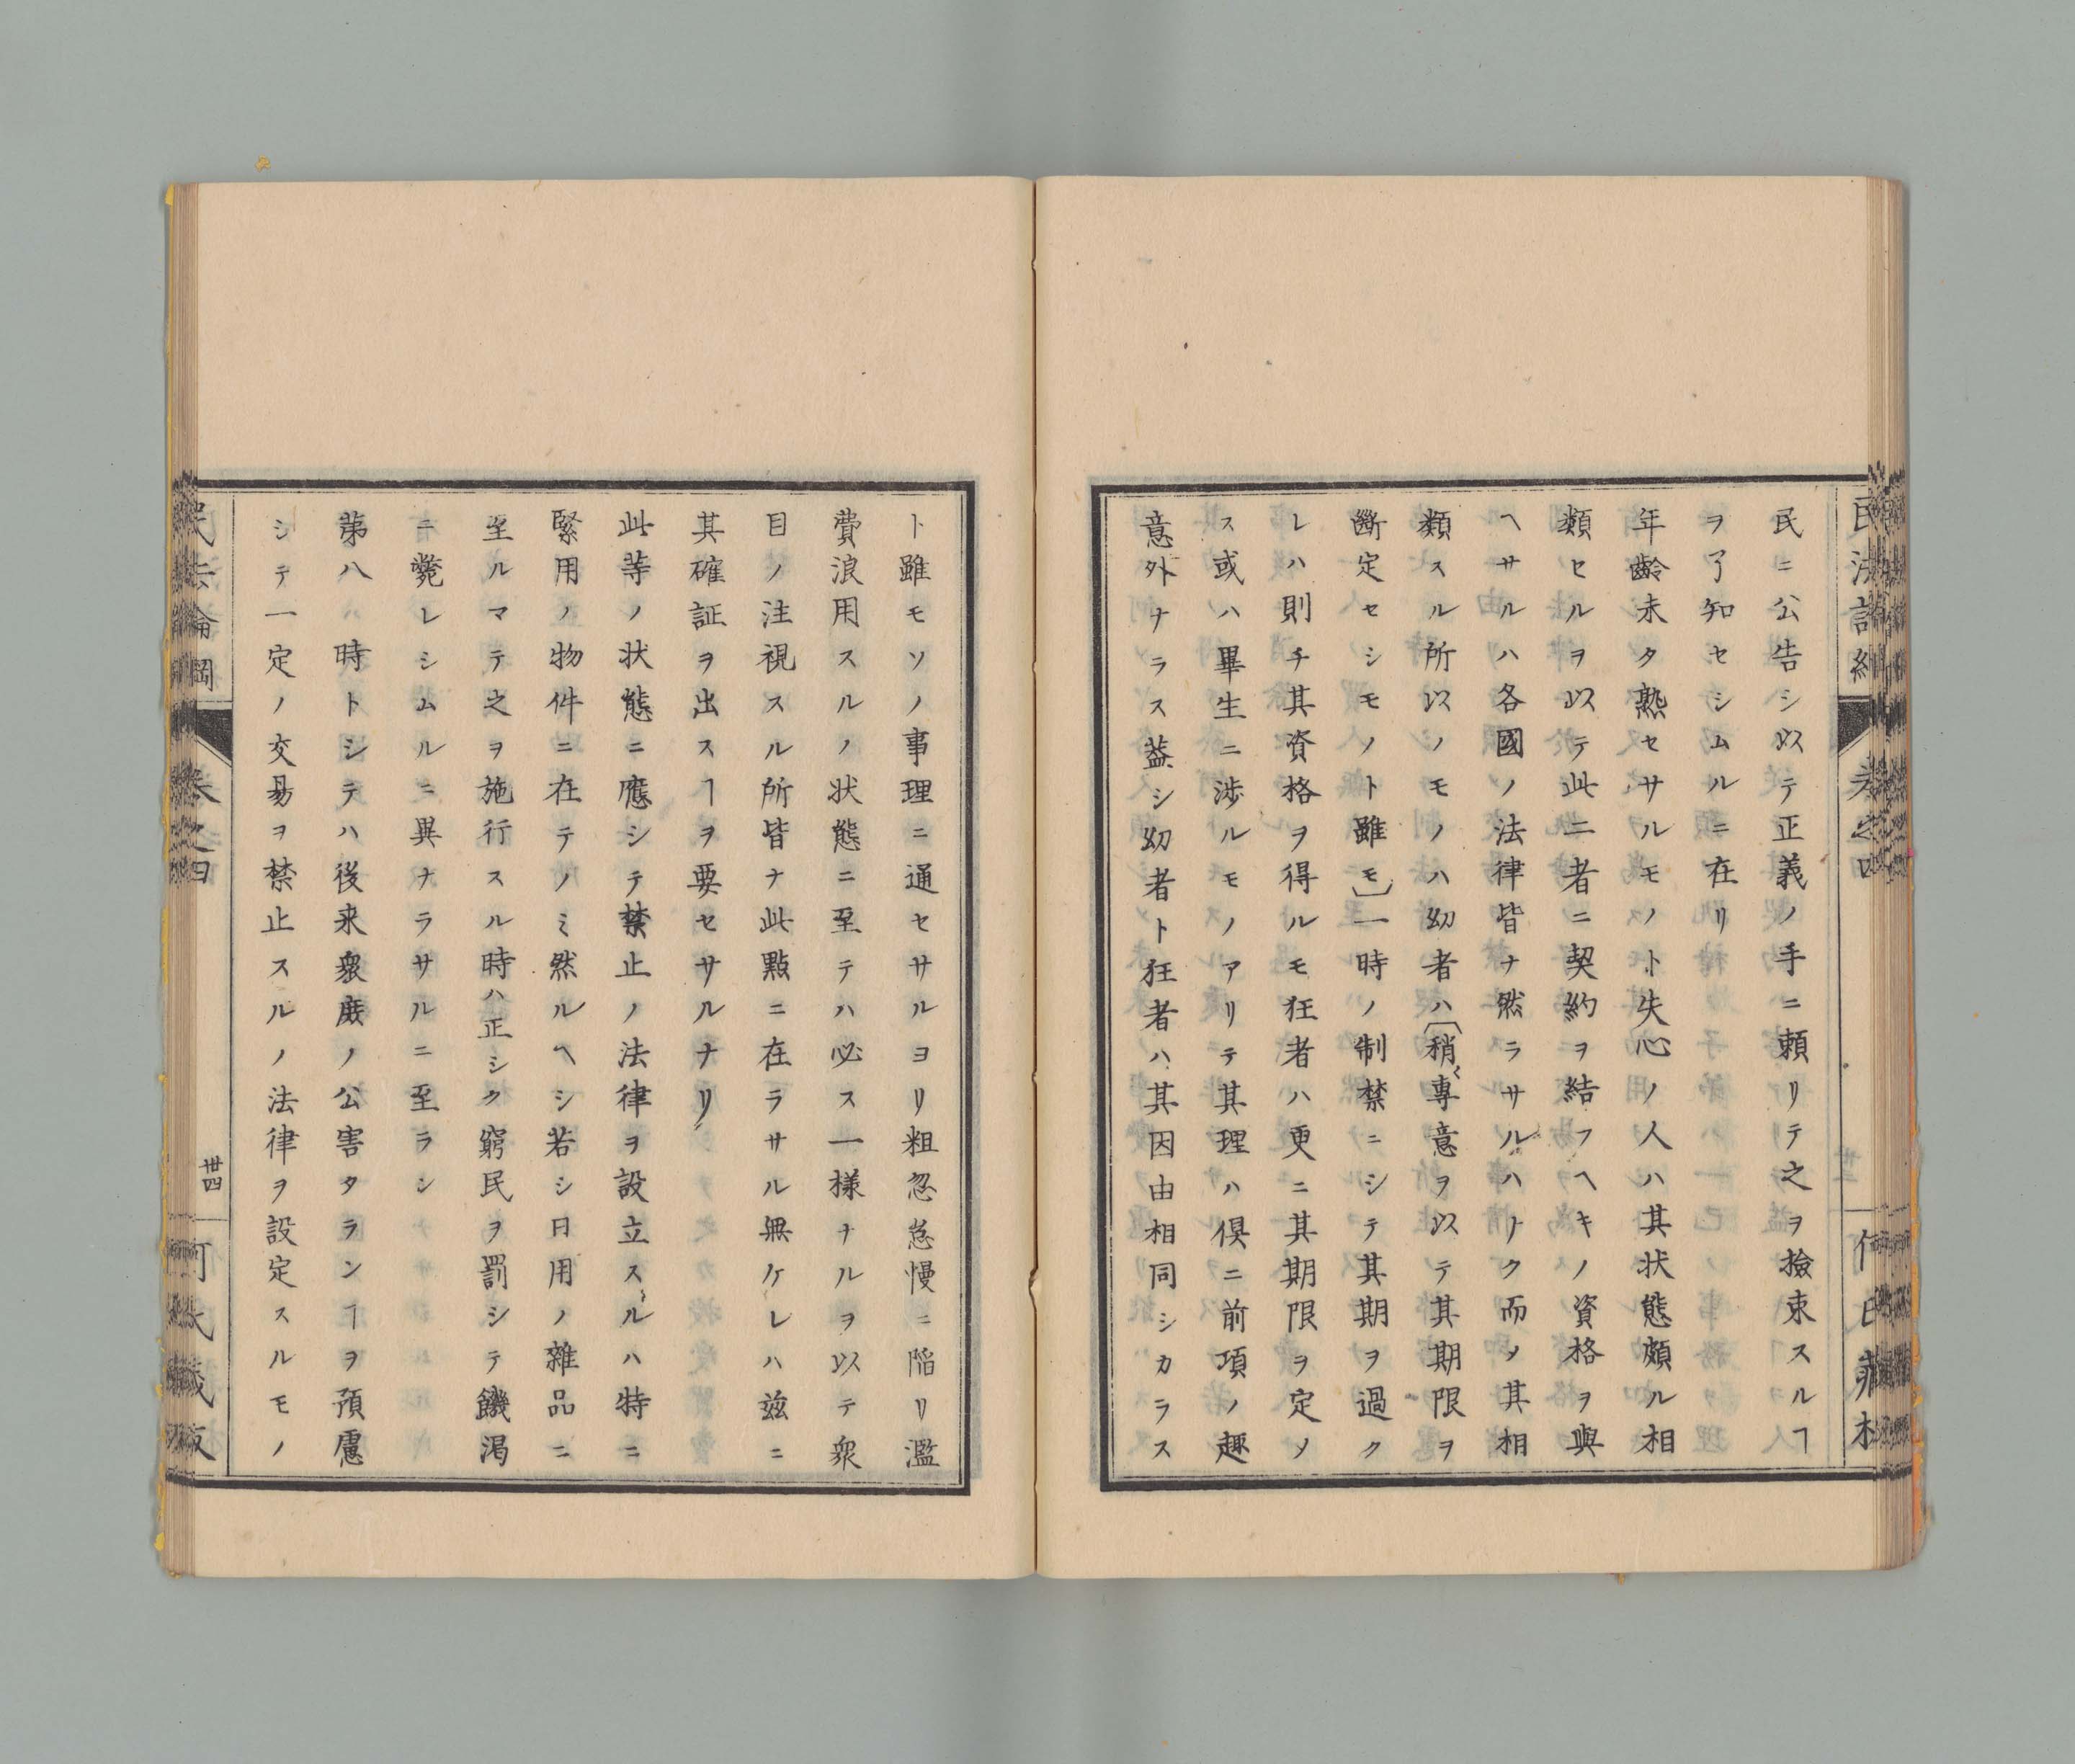 民ニ公告シ以テ正義ノ手ニ頼リテ之ヲ撿束スルヿ
ヲ了知セシムルニ在リ
年齡未タ熟セサルモノト失心ノ人ハ其状態頗ル相
類セルヲ以テ此二者ニ契約ヲ結フヘキノ資格ヲ與
ヘサルハ各國ノ法律皆ナ然ラサルハナク而メ其相
類スル所以ノモノハ幼者ハ〔稍〻專意ヲ以テ其期限ヲ
斷定セシモノト雖モ〕一時ノ制禁ニシテ其期ヲ過ク
レハ則チ其資格ヲ得ルモ狂者ハ更ニ其期限ヲ定メ
ス或ハ畢生ニ渉ルモノアリテ其理ハ倶ニ前項ノ趣
意外ナラス蓋シ幼者ト狂者ハ其因由相同シカラス
ト雖モソノ事理ニ通セサルヨリ粗忽怠慢ニ陷リ濫
費浪用スルノ状態ニ至テハ必ス一樣ナルヲ以テ衆
目ノ注視スル所皆ナ此點ニ在ラサル無ケレハ茲ニ
其確証ヲ出スヿヲ要セサルナリ
此等ノ状態ニ應シテ禁止ノ法律ヲ設立スルハ特ニ
緊用ノ物件ニ在テノミ然ルヘシ若シ日用ノ雜品ニ
至ルマテ之ヲ施行スル時ハ正シク窮民ヲ罰シテ饑渇
ニ斃レシムルニ異ナラサルニ至ラン
第八 時トシテハ後来衆庶ノ公害タランヿヲ預慮
シテ一定ノ交易ヲ禁止スルノ法律ヲ設定スルモノ
民法論綱 卷之四 卅四 何氏藏版